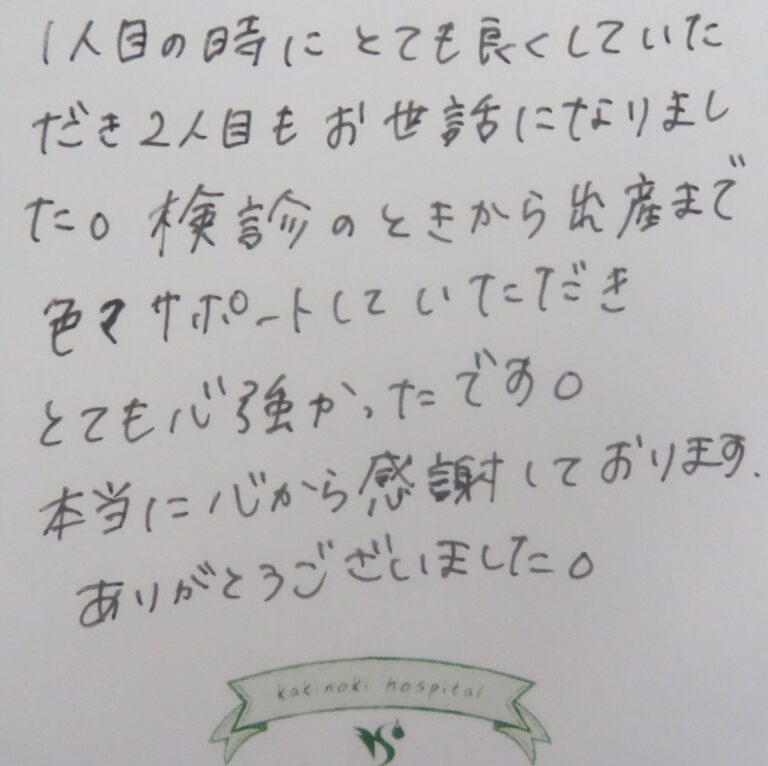 1人目の時にとても良くしていた
だき2人目もお世話になりまし
た。検診のときから出産まで
色々サポートしていただき
とても心強かったです。
本当に心から感謝しております.
ありがとうございました。
kakinoki hospital